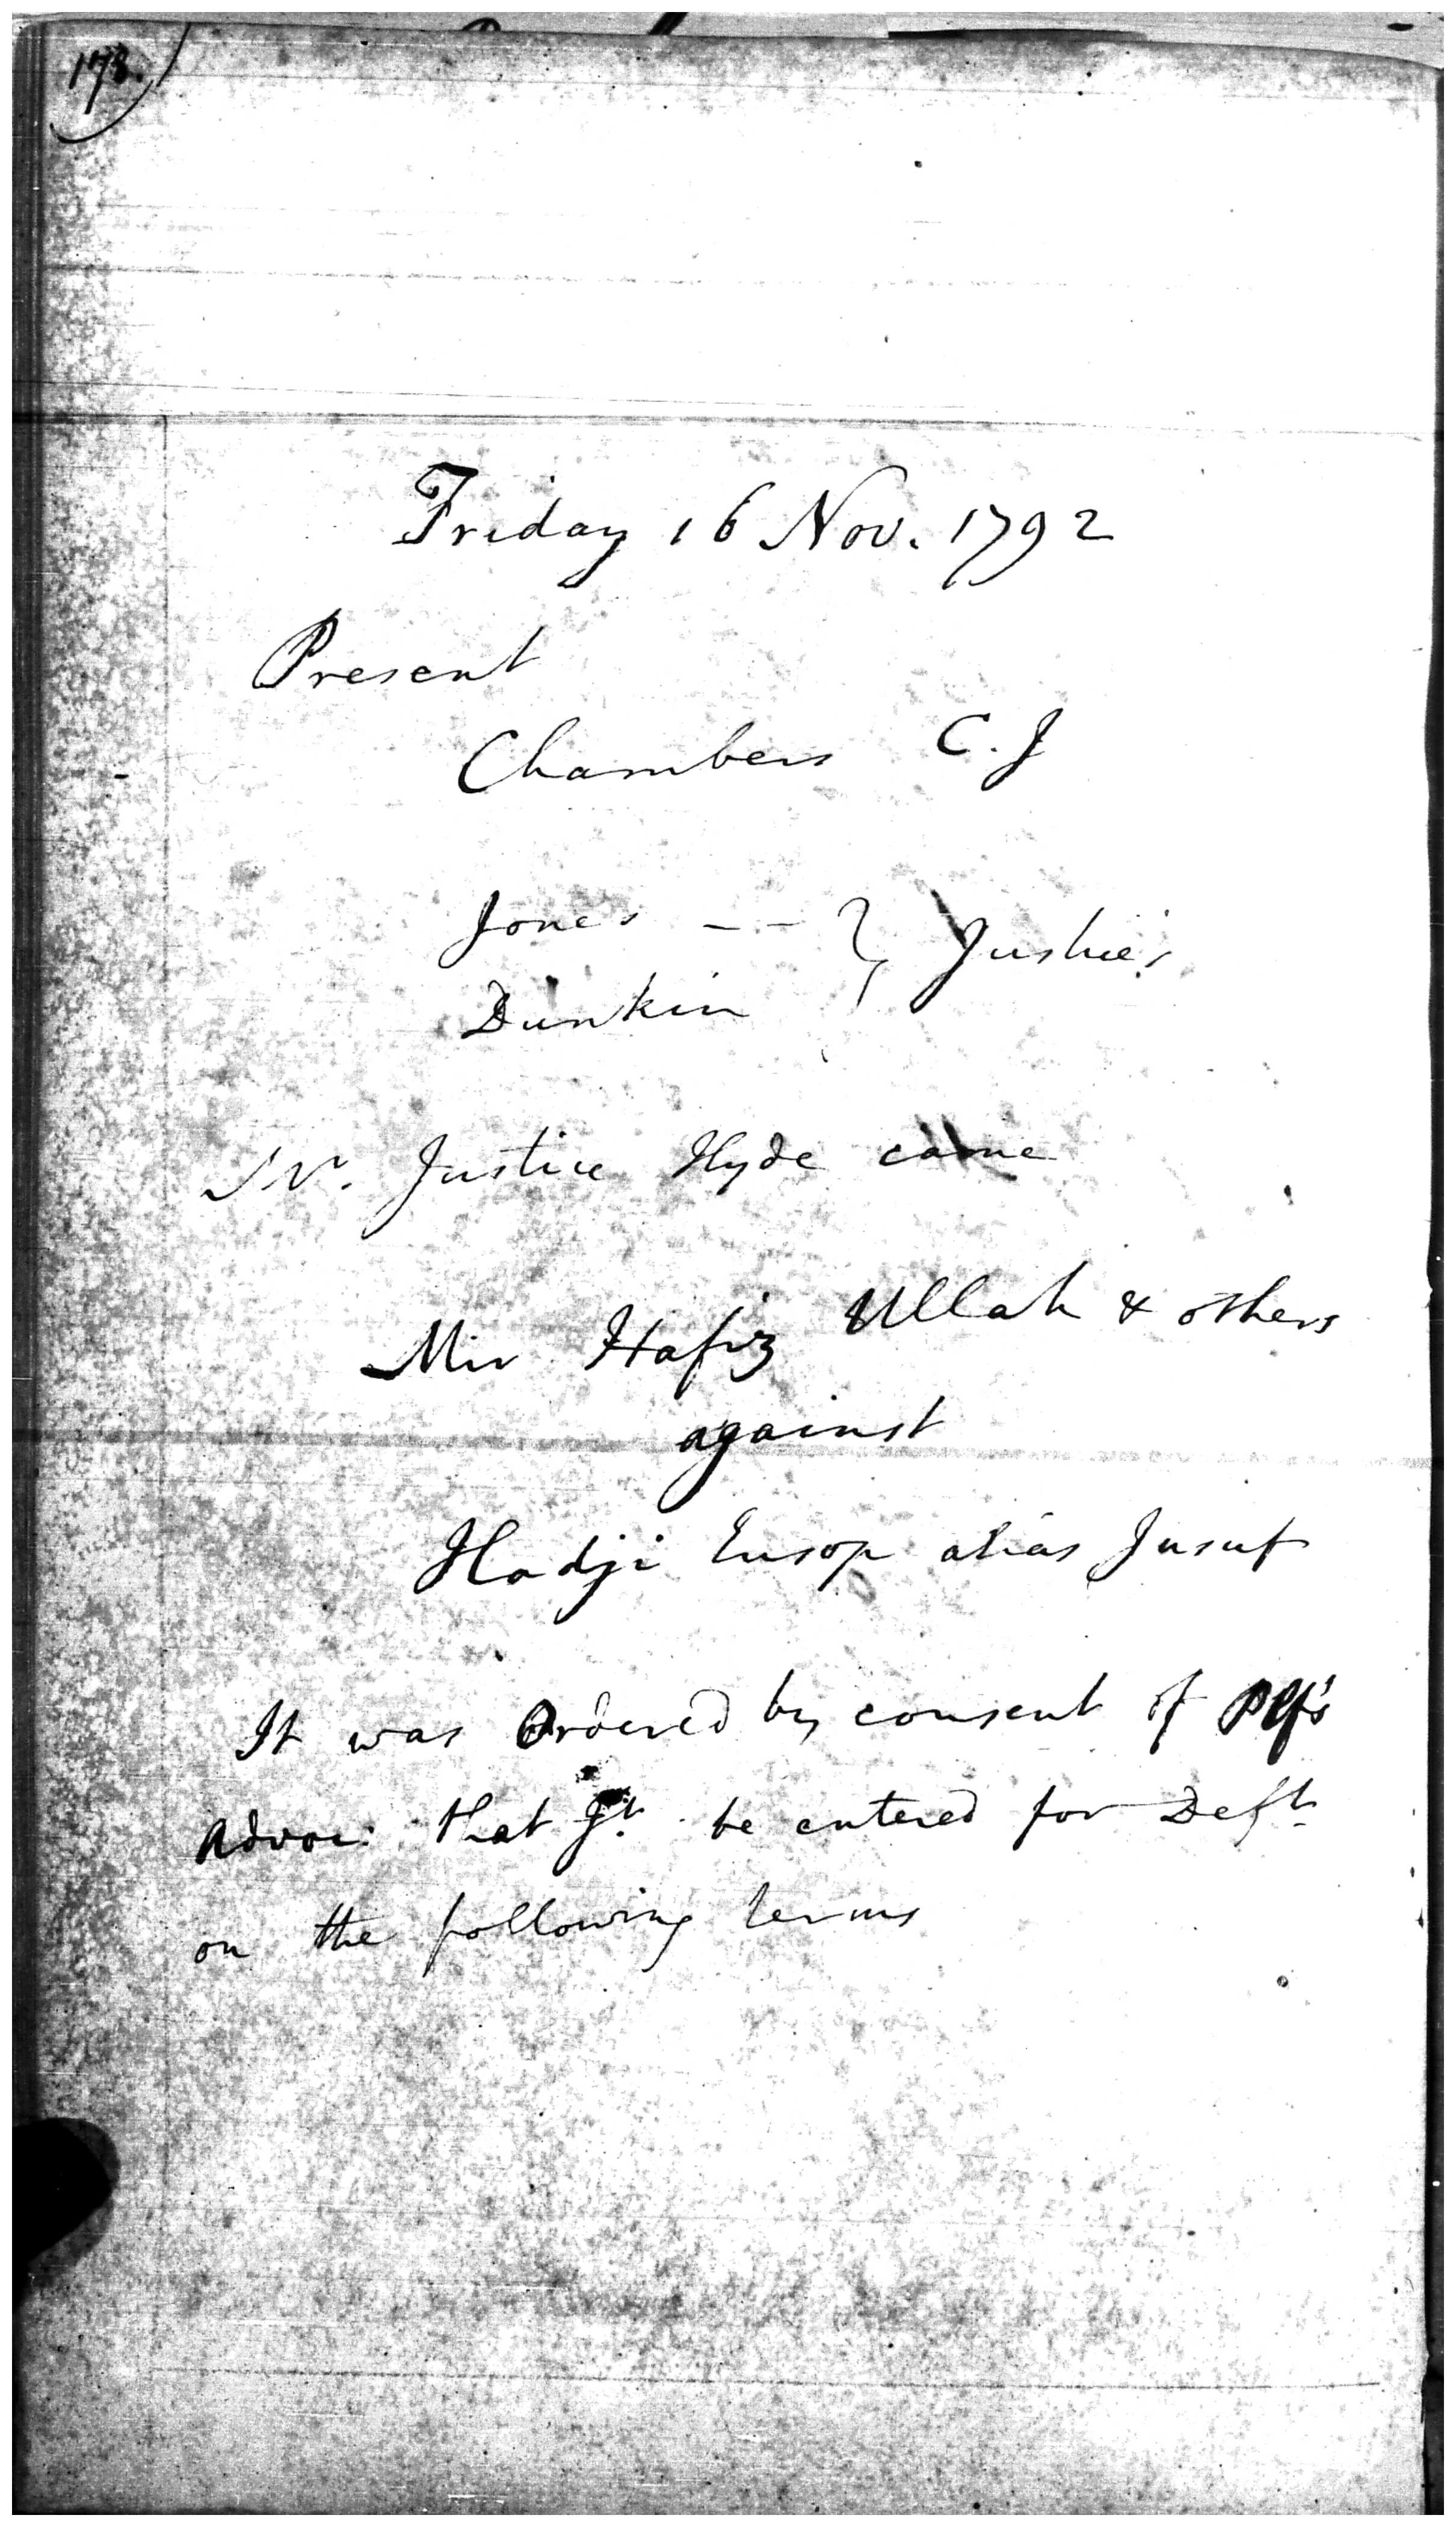 178.
Friday 16 Nov. 1792
Present
Chambers C. J
Jones -- } Justices
Dunkin
Mr. Justice Hyde came
Mir Hafiz Ullah & others
against
Hadji Eusop alias Jusuf
It was Ordered by consent of Plf's
Advoc: that Jt. be entered for Deft.
on the following terms